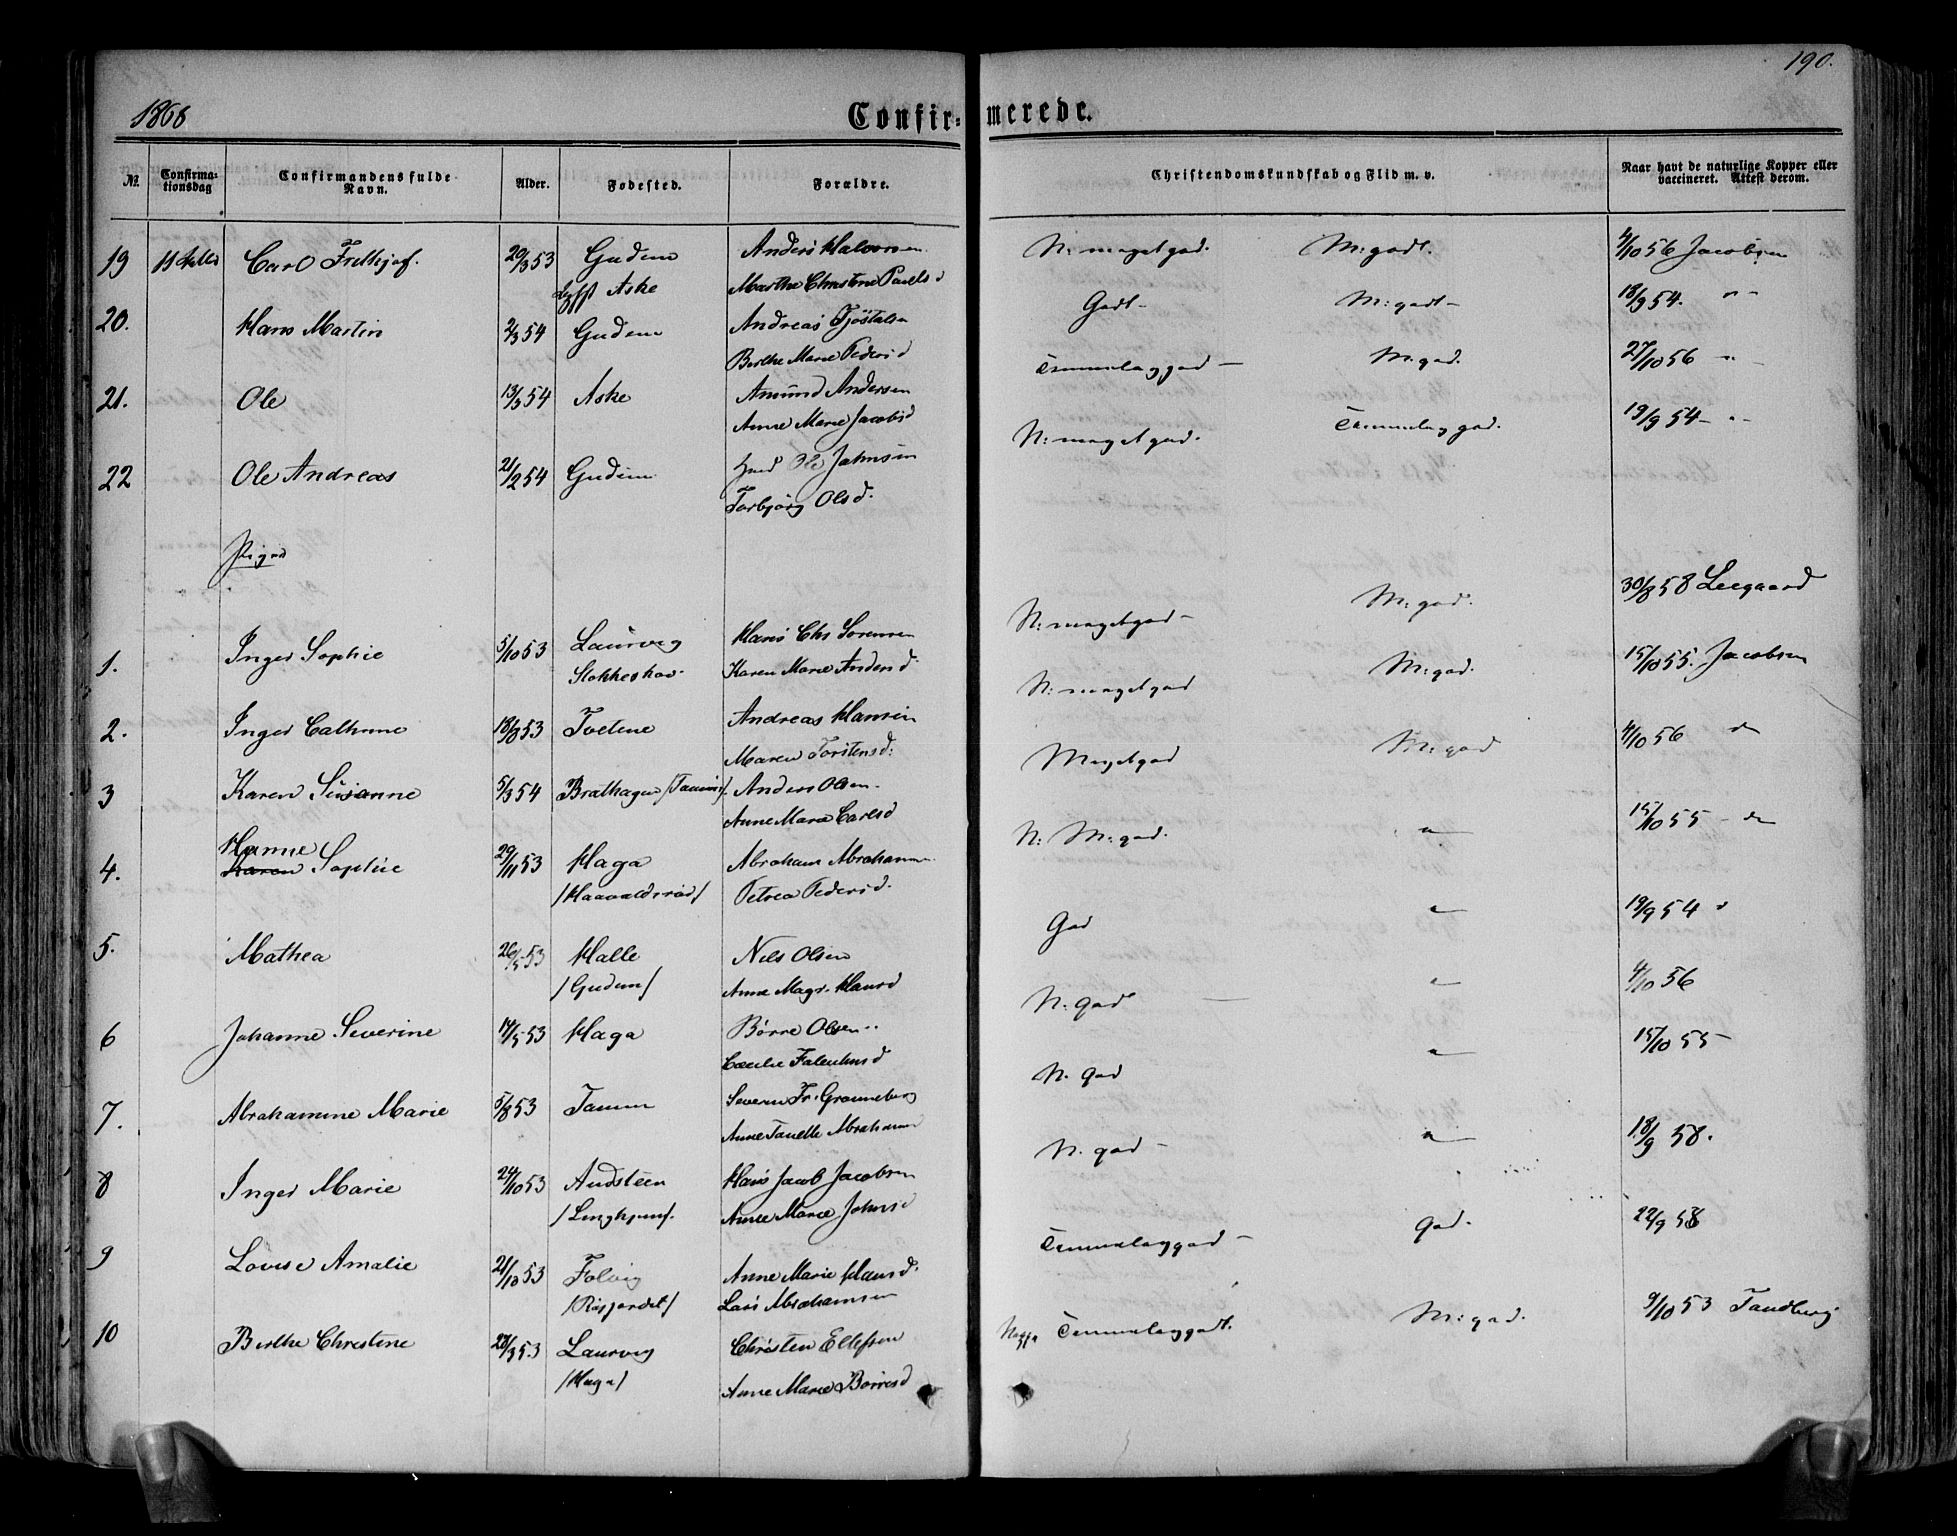 190.
1868
Confir=
merede.
No.
Confirma-
tionsdag
Confirmandens fulde
Navn.
Alder.
Fødested.
Forældre.
Christendomskundskab og Flid m. v.
Naar havt de naturlige Kopper eller
vaccineret. Attest derom.
19 Carl Frithjof. 29/3 53 Gudem Anders Halvorsen N: meget god. M: godt. 4/10 56 Jacobsen
Aske Marthe Christine Paulsd
20. Hans Martin 2/3 54 Gudem Andreas Godt- M: godt- 18/9 54. "-
Berthe Marie Pedersd
21. Ole 13/3 54 Aske Amund Andersen Temmelag god - M. god. 27/10 56 "
Anne Marie Jacobsd
22 Ole Andreas 21/2 54 Gudem Ole Johnsen N: meget god. Temmelag god. 19/9 54 - "
Torbjørg Olsd.
Piger
1. Inger Sophie 5/10 53 Laurvig Hans Chr Sørensen N: meget god - M: god. 30/8 58 Leegaard
Stokkeskov Karen Marie Andersd.
2. Inger Cathrine 18/8 53 Tvetene Andreas Hansen N: meget god M: god. 15/10 55. Jacobsen
Maren Torstensd:
3 Karen Susanne 5/3 54 Brathagen /Tamm/. Anders Olsen. Meget god M: god 4/10 56 do
Anne Marie Carlsd
Hanne
4. Karen Sophie 29/11 53 Haga Abraham Abrahamsen N: M: god. " 15/10 55 - do
/Haavaldsrød/ Petrea Pedersd.
5. Mathea 26/5 53 Halle Nils Olsen God " 19/9 54
/Gudem/ Anne Magr. Hansd
6 Johanne Severine 14/5 53 Haga Børre Olsen N: god - " 4/10 56
Cecilie Falentinsd
7. Abrahamine Marie 5/8 53 Tamm Severin Fr. Granneberg N. god " 15/10 55 -
Anne Tanette Abrahamsd
8 Inger Marie 24/10 53 Audsteen Hans Jacob Jacobsen N. god - " 18/9 58.
/Linghjem/. Anne Marie Johnsd
9 Lovise Amalie 21/10 53 Folvig Anne Marie Hansd. Temmelag god - God. 22/9 58
Lars Abrahamsen
10 Berthe Christine 28/3 53 Laurvig Christen Ellefsen Temmelag godt. M: god. 9/10 53 Tandberg
/Haga/ Anne Marie Børresd